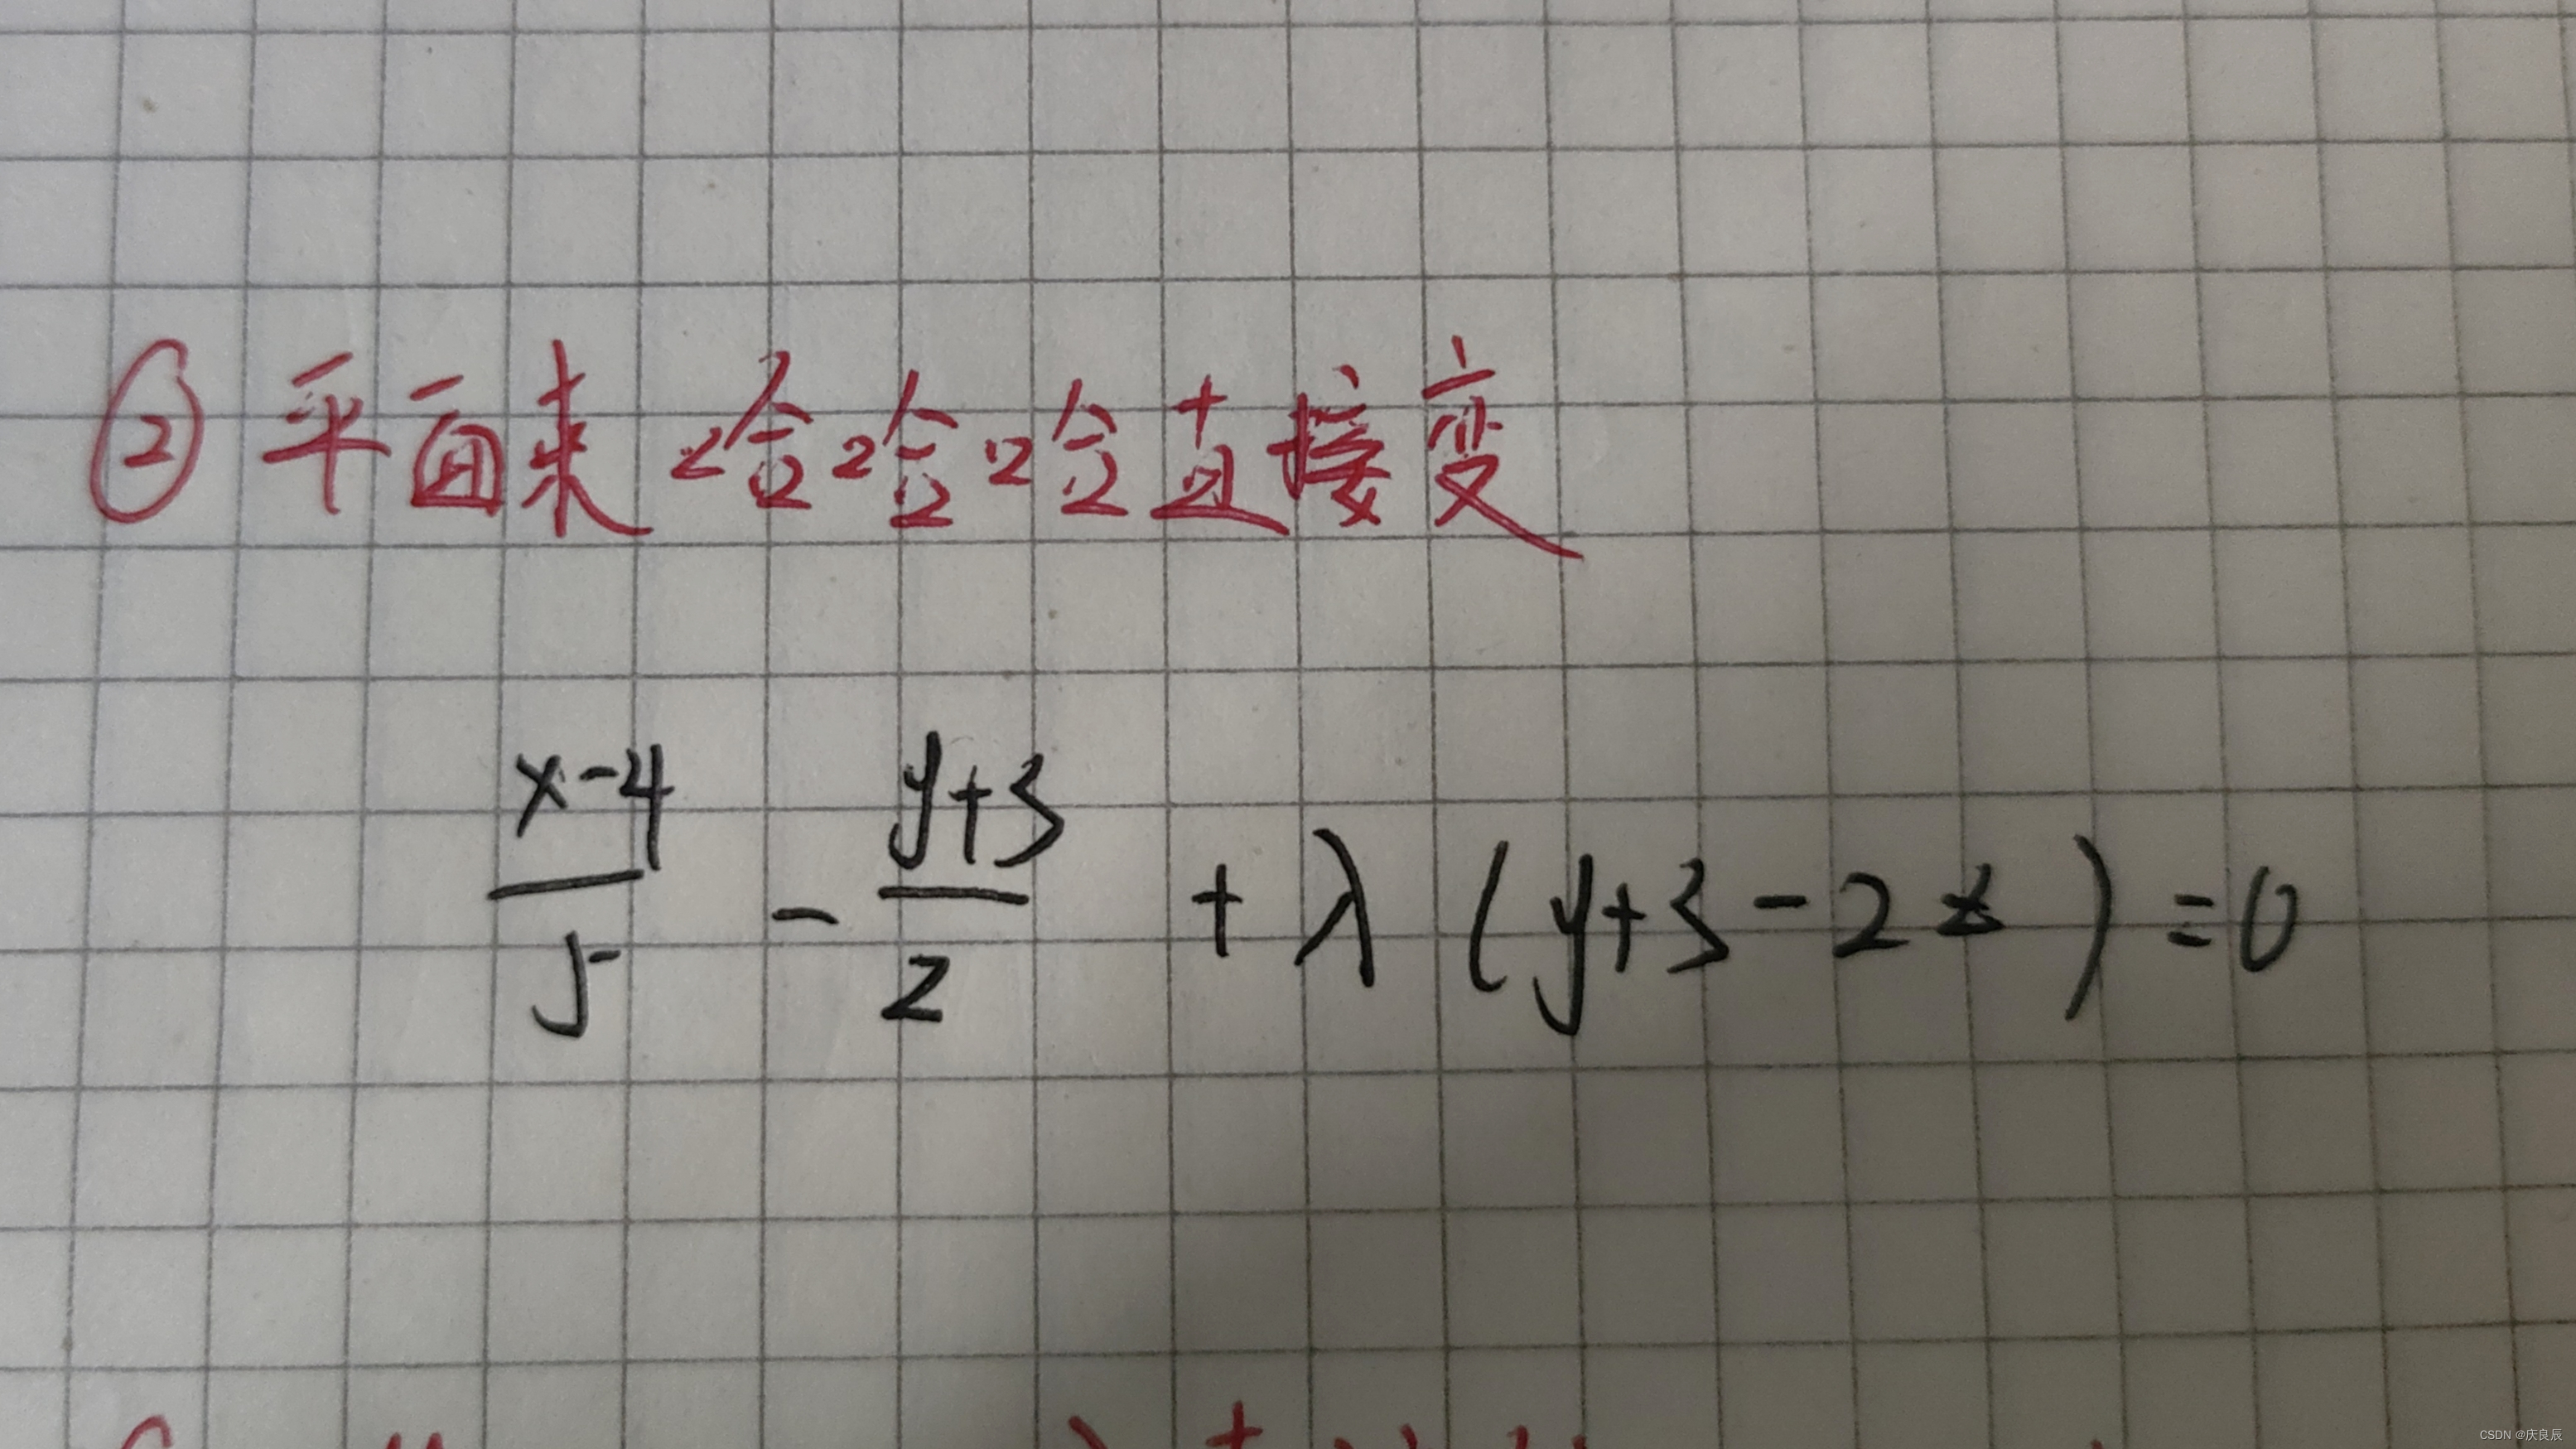 ② 平面束哈哈哈直接变
(x-4)/5 - (y+3)/2 + λ(y+3-2z)=0
CSDN @庆良辰